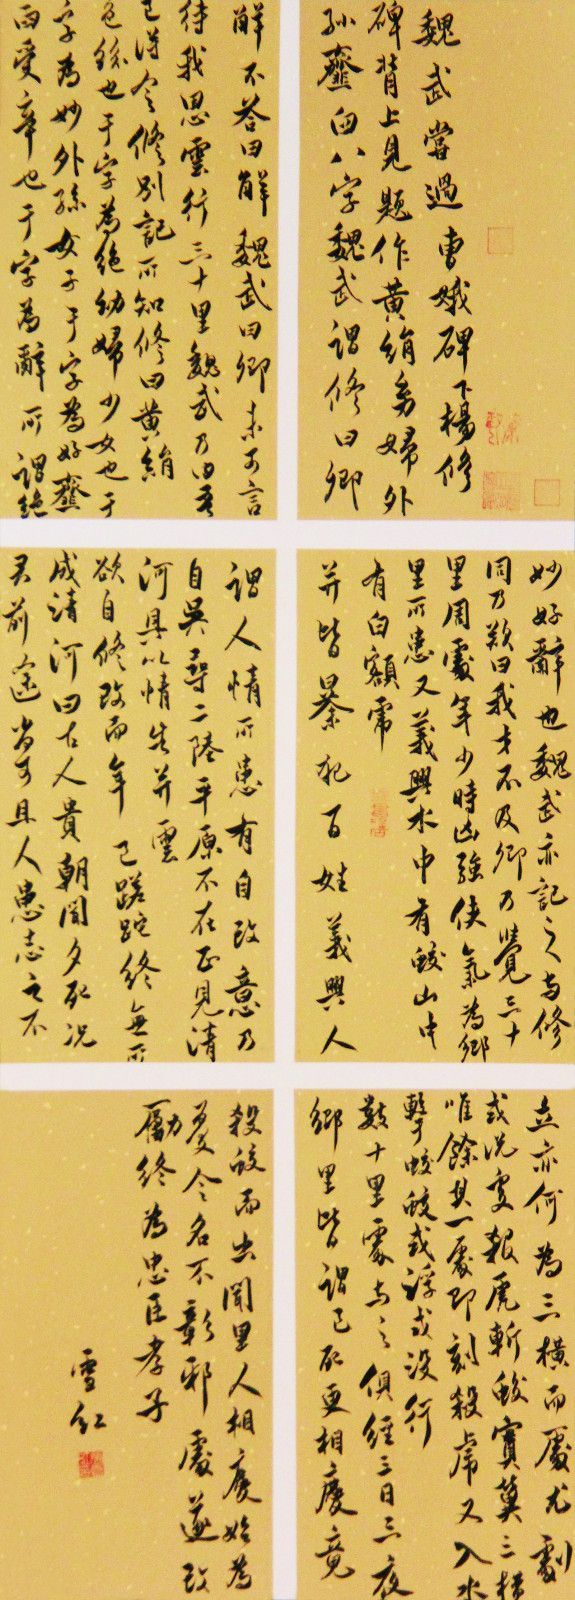 魏武嘗過曹娥碑下楊修
碑背上見題作黃絹幼婦外
孫齏臼八字魏武謂修曰卿
解不答曰解魏武曰卿未可言
待我思雲行三十里魏武乃曰吾
已得令修別記所知修曰黃絹
色絲也于字為絕幼婦少女也于
字為妙外孫女子于字為好齏
臼受辛也于字為辭所謂絕
妙好辭也魏武亦記之与修
同乃歎曰我才不及卿乃覺三十
里周處年少時凶強俠氣為鄉
里所患又義興水中有蛟山中
有白額虎
并皆暴犯百姓義興人
謂人情所患有自改意乃
自吳尋二陸平原不在正見清
河具以情告并雲
欲自修改而年已蹉跎終無所
成清河曰古人貴朝聞夕死況
君前途尚可且人患志之不
立亦何為三橫而處尤劇
或說處殺虎斬蛟實冀三橫
唯餘其一處即刻殺虎又入水
擊蛟蛟或浮或沒行
數十里處与之俱經三日三夜
鄉里皆謂已死更相慶竟
殺蛟而出聞里人相慶始為
憂令名不彰邪處遂改
勵終為忠臣孝子
雪紅